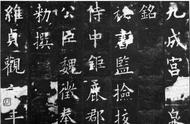 九成宮
銘
秘書監檢校
侍中鉅鹿郡
公臣魏徵奉
勅撰
維貞觀六年